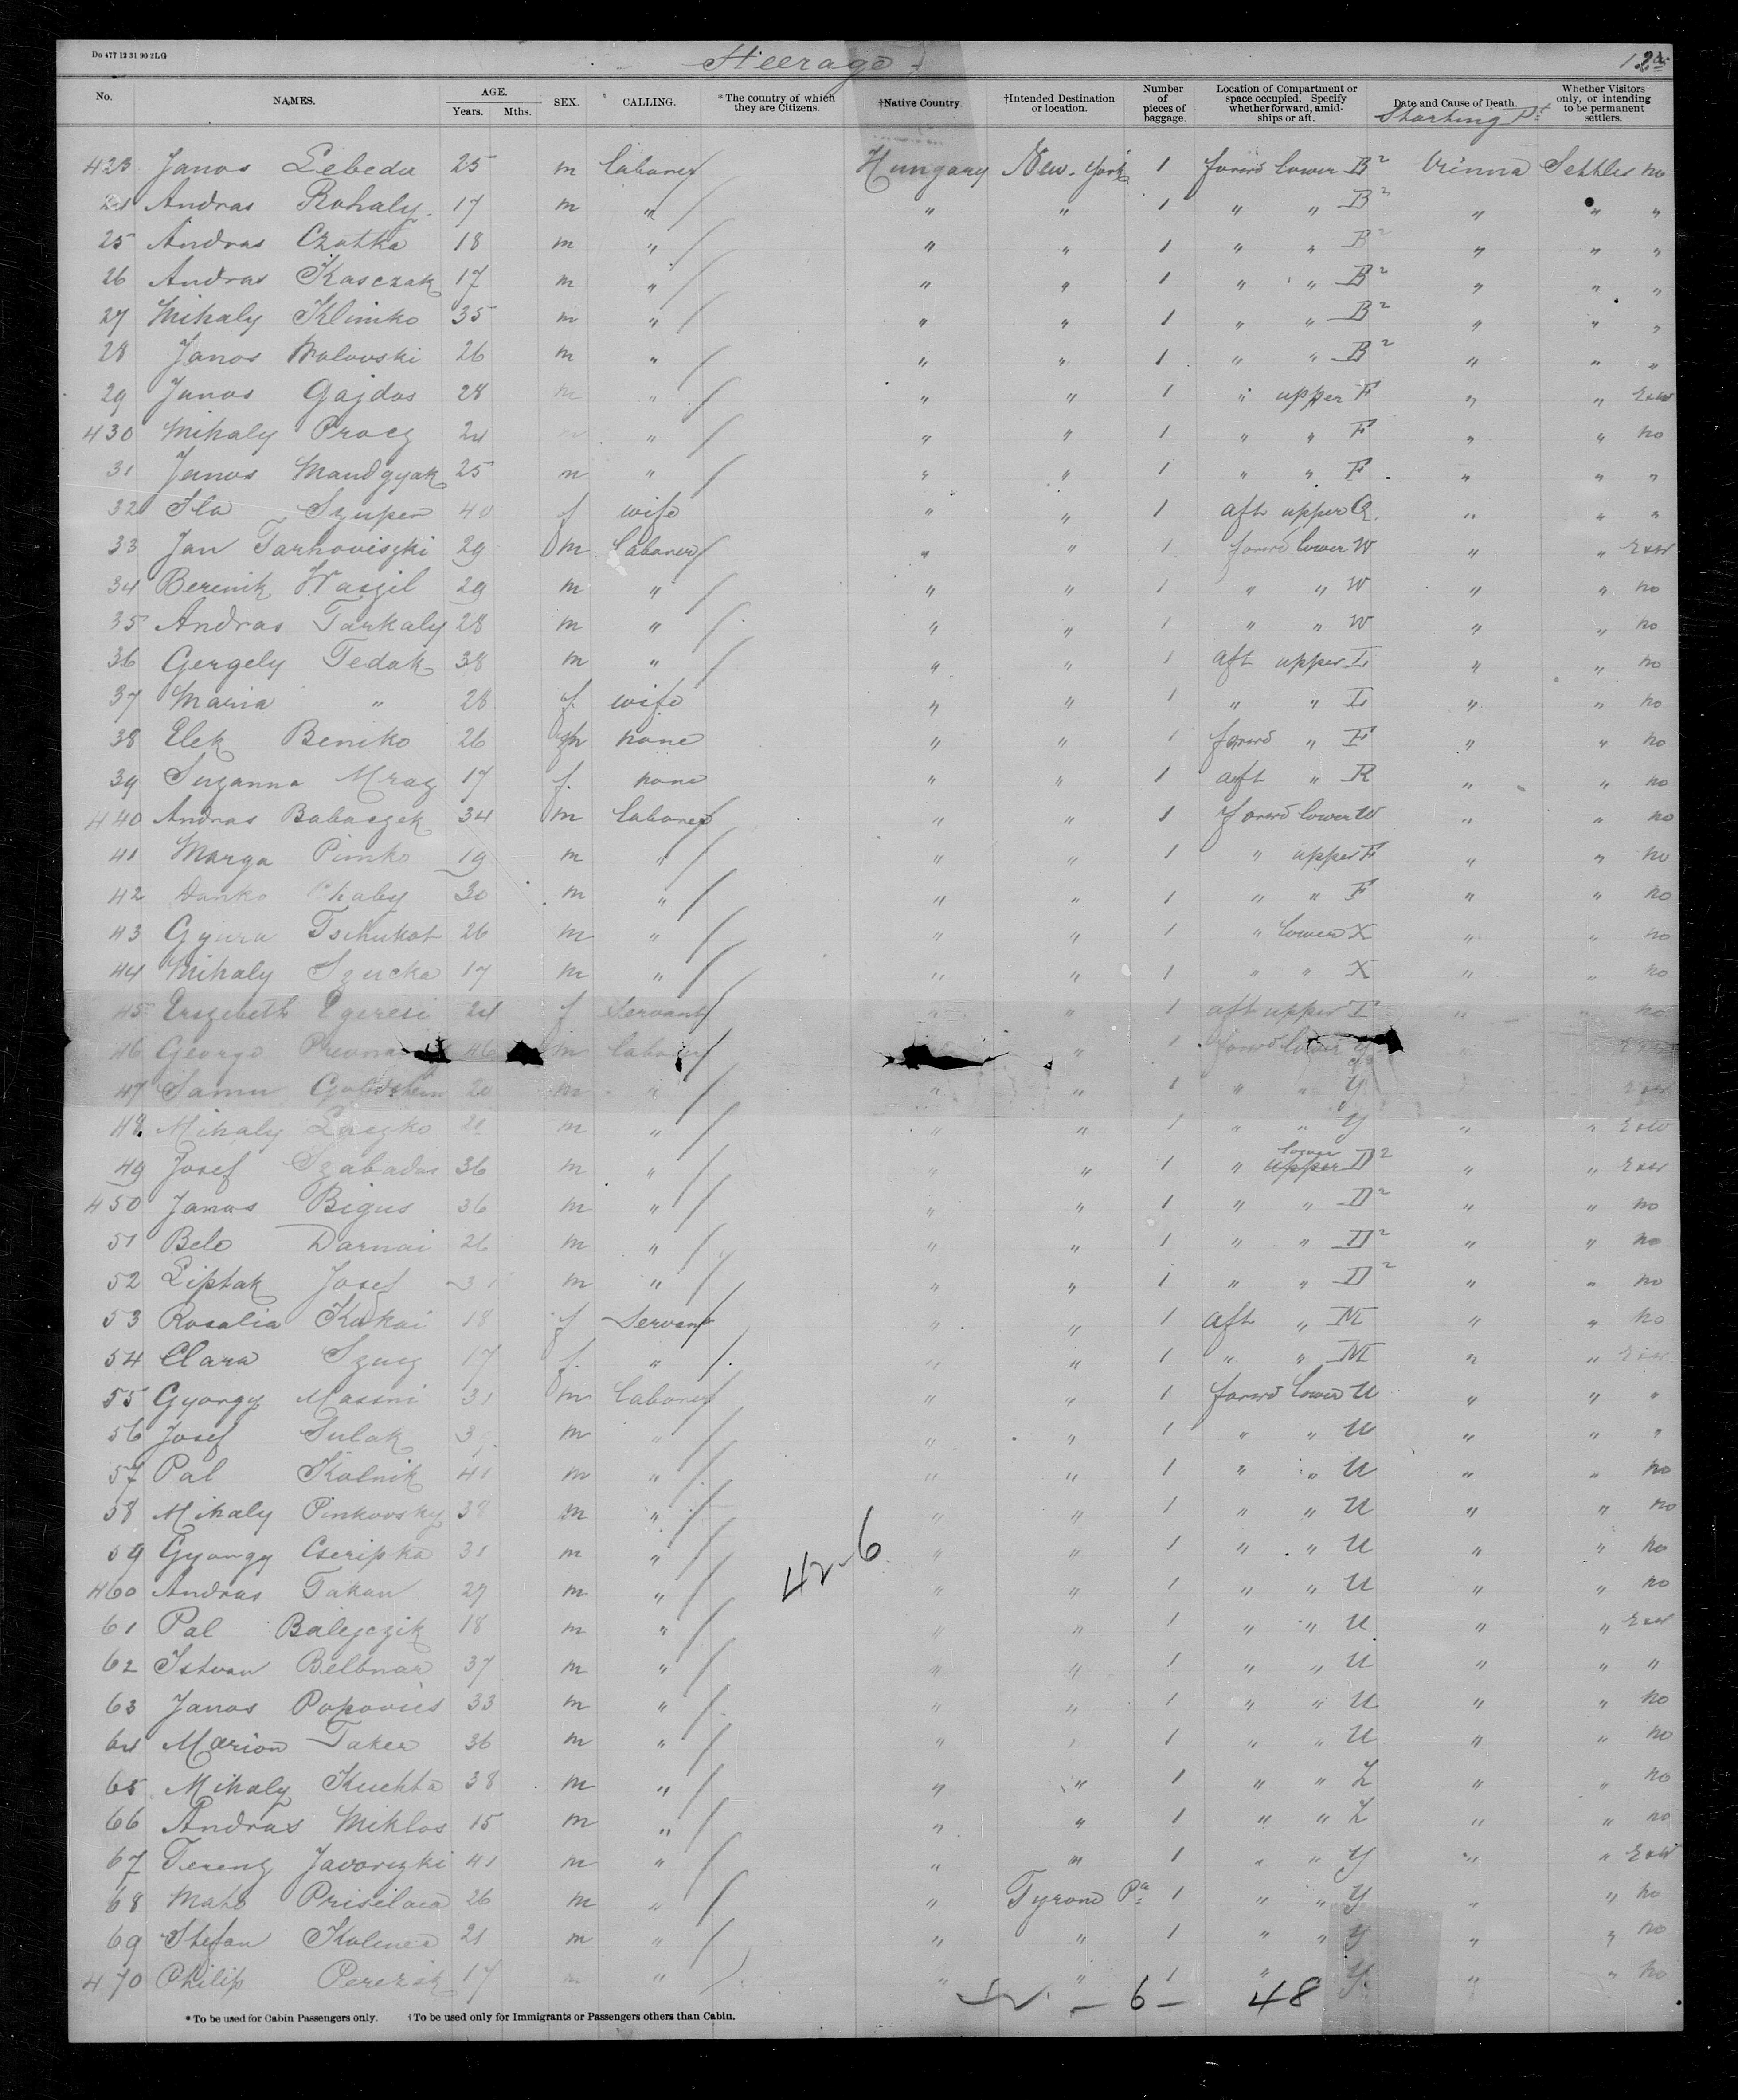 Do 477 12 31 90 2LG
Steerage
No. NAMES. AGE. Years. Mths. SEX. CALLING. *The country of which they are Citizens. †Native Country. †Intended Destination or location. Number of pieces of baggage. Location of Compartment or space occupied. Specify whether forward, amidships or aft. Date and Cause of Death. Whether Visitors only, or intending to be permanent settlers.
Starting Pt
423 Janos Lebeda 25 m laborer Hungary New-York 1 forwd lower B2 Vienna Settler no
24 Andras Rohaly 17 m " " " 1 " " B2 " " "
25 Andras Czatka 18 m " " " 1 " " B2 " " "
26 Andras Kasczak 17 m " " " 1 " " B2 " " "
27 Mihaly Klimko 35 m " " " 1 " " B2 " " "
28 Janos Walovski 26 m " " " 1 " " B2 " " "
29 Janos Gajdos 28 m " " " 1 " upper F " "
430 Mihaly Procz 24 " " " 1 " " F " " no
31 Janos Mandgyak 25 m " " " 1 " " F " " "
32 Ila Szuper 40 f wife " " 1 aft upper Q " " "
33 Jan Tarhoviszki 29 m laborer " " 1 forwd lower W " "
34 Berenik Waszil 29 m " " " 1 " " W " " no
35 Andras Tarkaly 28 m " " " 1 " " W " " no
36 Gergely Fedak 38 m " " " 1 aft upper L " " no
37 Maria " 28 f wife " " 1 " " L " " no
38 Elek Beniko 26 m none " " 1 forwd " F " " no
39 Suzanna Mraz 17 f none " " 1 aft " R " " no
440 Andras Babaczek 34 m laborer " " 1 forwd lower W " " no
41 Marga Pimko 19 m " " " 1 " upper F " " no
42 Danko Chaby 30 m " " " 1 " " F " " no
43 Gyura Tschukot 26 m " " " 1 " lower X " " no
44 Mihaly Szucka 17 m " " " 1 " " X " " no
45 Erszebeth Egeresi 24 f Servant " " 1 aft upper " " no
46 George 46 m laborer " 1 forwd lower Y
47 Samu 20 m " " " 1 " " Y
48 Mihaly Laszko m " " " 1 " " Y " "
49 Josef Szabados 36 m " " " 1 " lower D2 " "
450 Janos Bigus 36 m " " " 1 " " D2 " " no
51 Bele Darnai 26 m " " " 1 " " D2 " " no
52 Liptak Josef m " " " 1 " " D2 " " no
53 Rosalia Kukai 18 f Servant " " 1 aft " M " " no
54 Clara Szucz 17 f " " " 1 " " M " "
55 Gyorgy Massni 31 m laborer " " 1 forwd lower U " " "
56 Josef Sulak m " " " 1 " " U " " "
57 Pal Kolnik 41 m " " " 1 " " U " " no
58 Mihaly Pinkovsky 38 m " " " 1 " " U " " no
59 Gyorgy Cseripka 31 m " " " 1 " " U " " no
460 Andras Takan 29 m " " " 1 " " U " " no
61 Pal Balejczik 18 m " " " 1 " " U " "
62 Istvan Belbnar 37 m " " " 1 " " U " " "
63 Janos Popovics 33 m " " " 1 " " U " " no
64 Marion Takea 36 m " " 1 " " U " " no
65 Mihaly Kuchta 38 m " " " 1 " " Z " " no
66 Andras Miklos 15 m " " " 1 " " Z " " no
67 Ferenz Javorszki 41 m " " " 1 " " Y " "
68 Mate 26 m " " Tyrone Pa 1 " " Y " " no
69 Stefan 21 m " " " 1 " " Y " " no
470 Philip Perezak 17 " " " 1 " Y " " no
42-6
— 6 — 48
*To be used for Cabin Passengers only. †To be used only for Immigrants or Passengers others than Cabin.